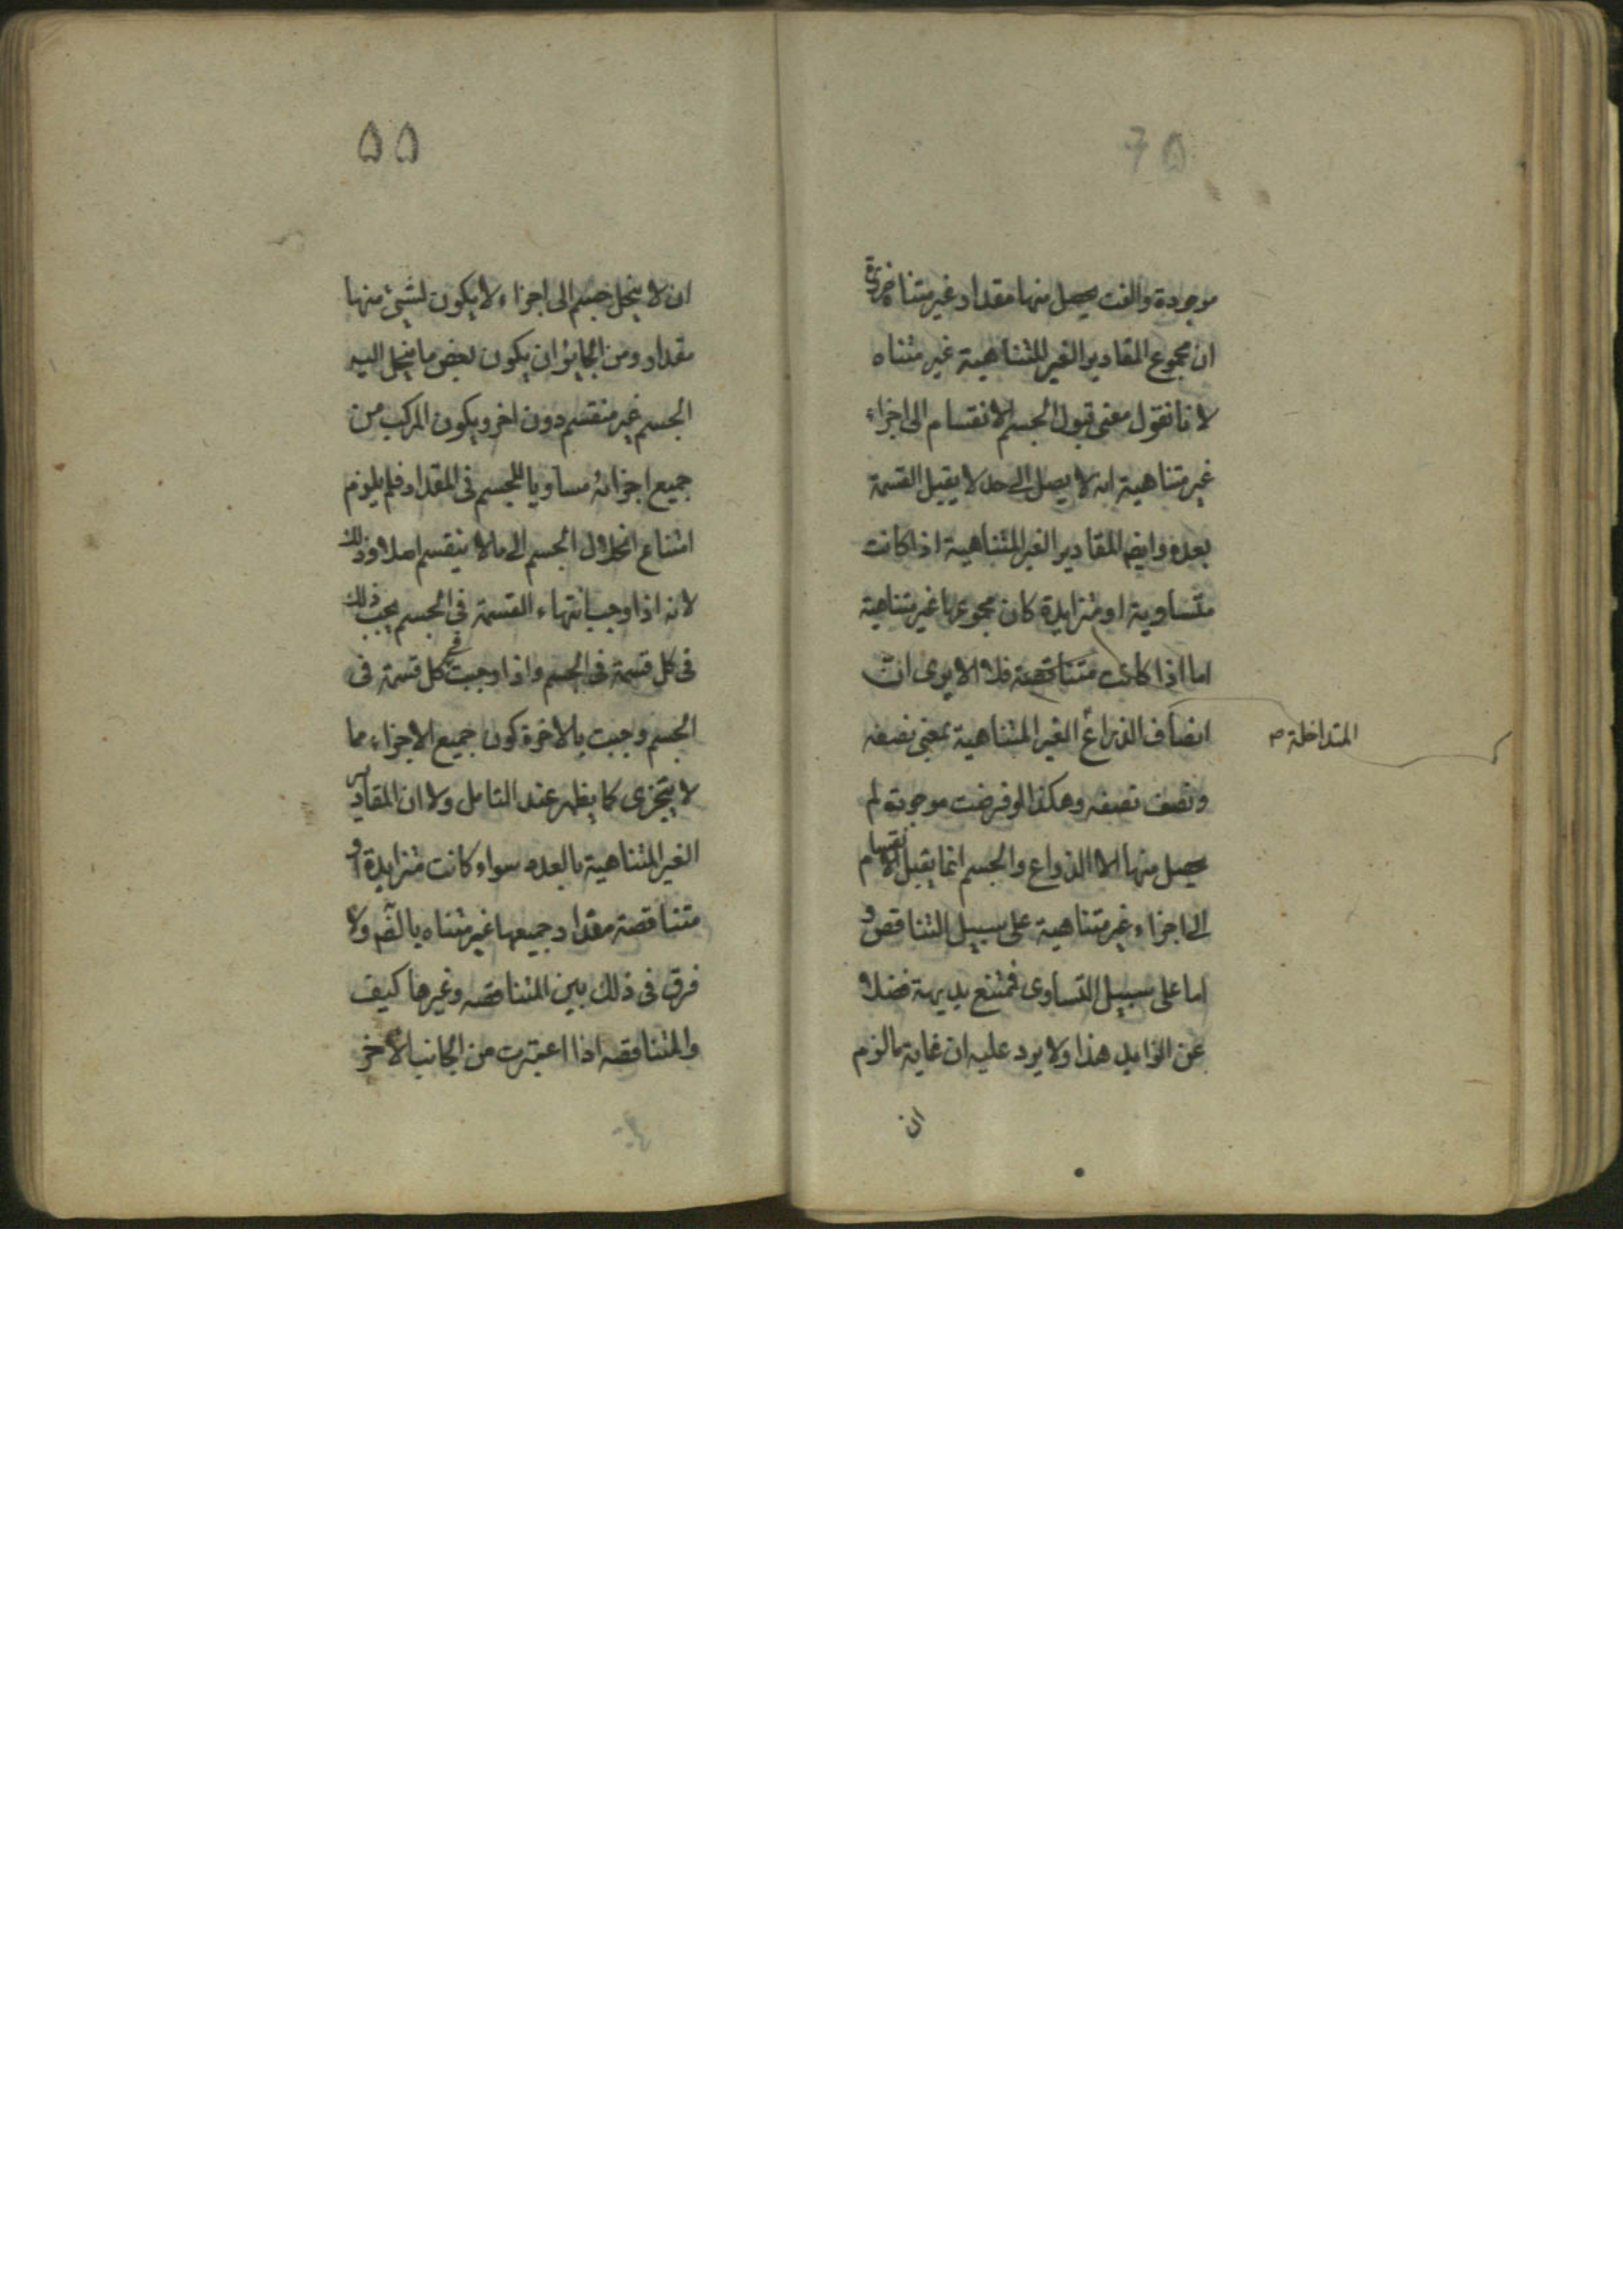 موجودة والفت يحصل منها مقدار غير متناه ضرورة
ان مجموع المقادير الغير المتناهية غير متناه
لانا نقول معنى قبول الجسم الانقسام الى اجزاء
غير متناهية انه لا يصل الى حد لا يقبل القسمة
بعده وايضا المقادير الغير المتناهية اذا كانت
متساوية او متزايدة كان مجموعها غير متناهية
اما اذا كانت متناقصة فلا الا يرى ان
انصاف الذراع الغير المتناهية بمعنى نصفه
المتداخلة
ونصف نصفه وهكذا لو فرضت موجودة لم
يحصل منها الا الذراع والجسم انما يقبل الانقسام
الى اجزاء غير متناهية على سبيل التناقص و
اما على سبيل التساوى فممتنع بديهة فضلا
عن الزايد هذا ولا يرد عليه ان غاية ما لزم
ان
۵۵
ان لا ينحل جسم الى اجزاء لا يكون لشىء منها
مقدار ومن الجايز ان يكون بعض ما ينحل اليه
الجسم غير منقسم دون اخر ويكون المركب من
جميع اجزائه مساويا للجسم فى المقدار فلم يلزم
امتناع انحلال الجسم الى ما لا ينقسم اصلا وذلك
لانه اذا وجب انتهاء القسمة فى الجسم يجب ذلك
فى كل قسمة فى الجسم واذا وجبت فى كل قسمة فى
الجسم وجبت بالاخرة كون جميع الاجزاء مما
لا يتجزى كما يظهر عند التامل ولان المقادير
الغير المتناهية بالعدد سواء كانت متزايدة او
متناقصة مقدار جميعها غير متناه بالضرورة ولا
فرق فى ذلك بين المتناقصه وغيرها كيف
والمتناقصه اذا اعتبرت من الجانب الاخر